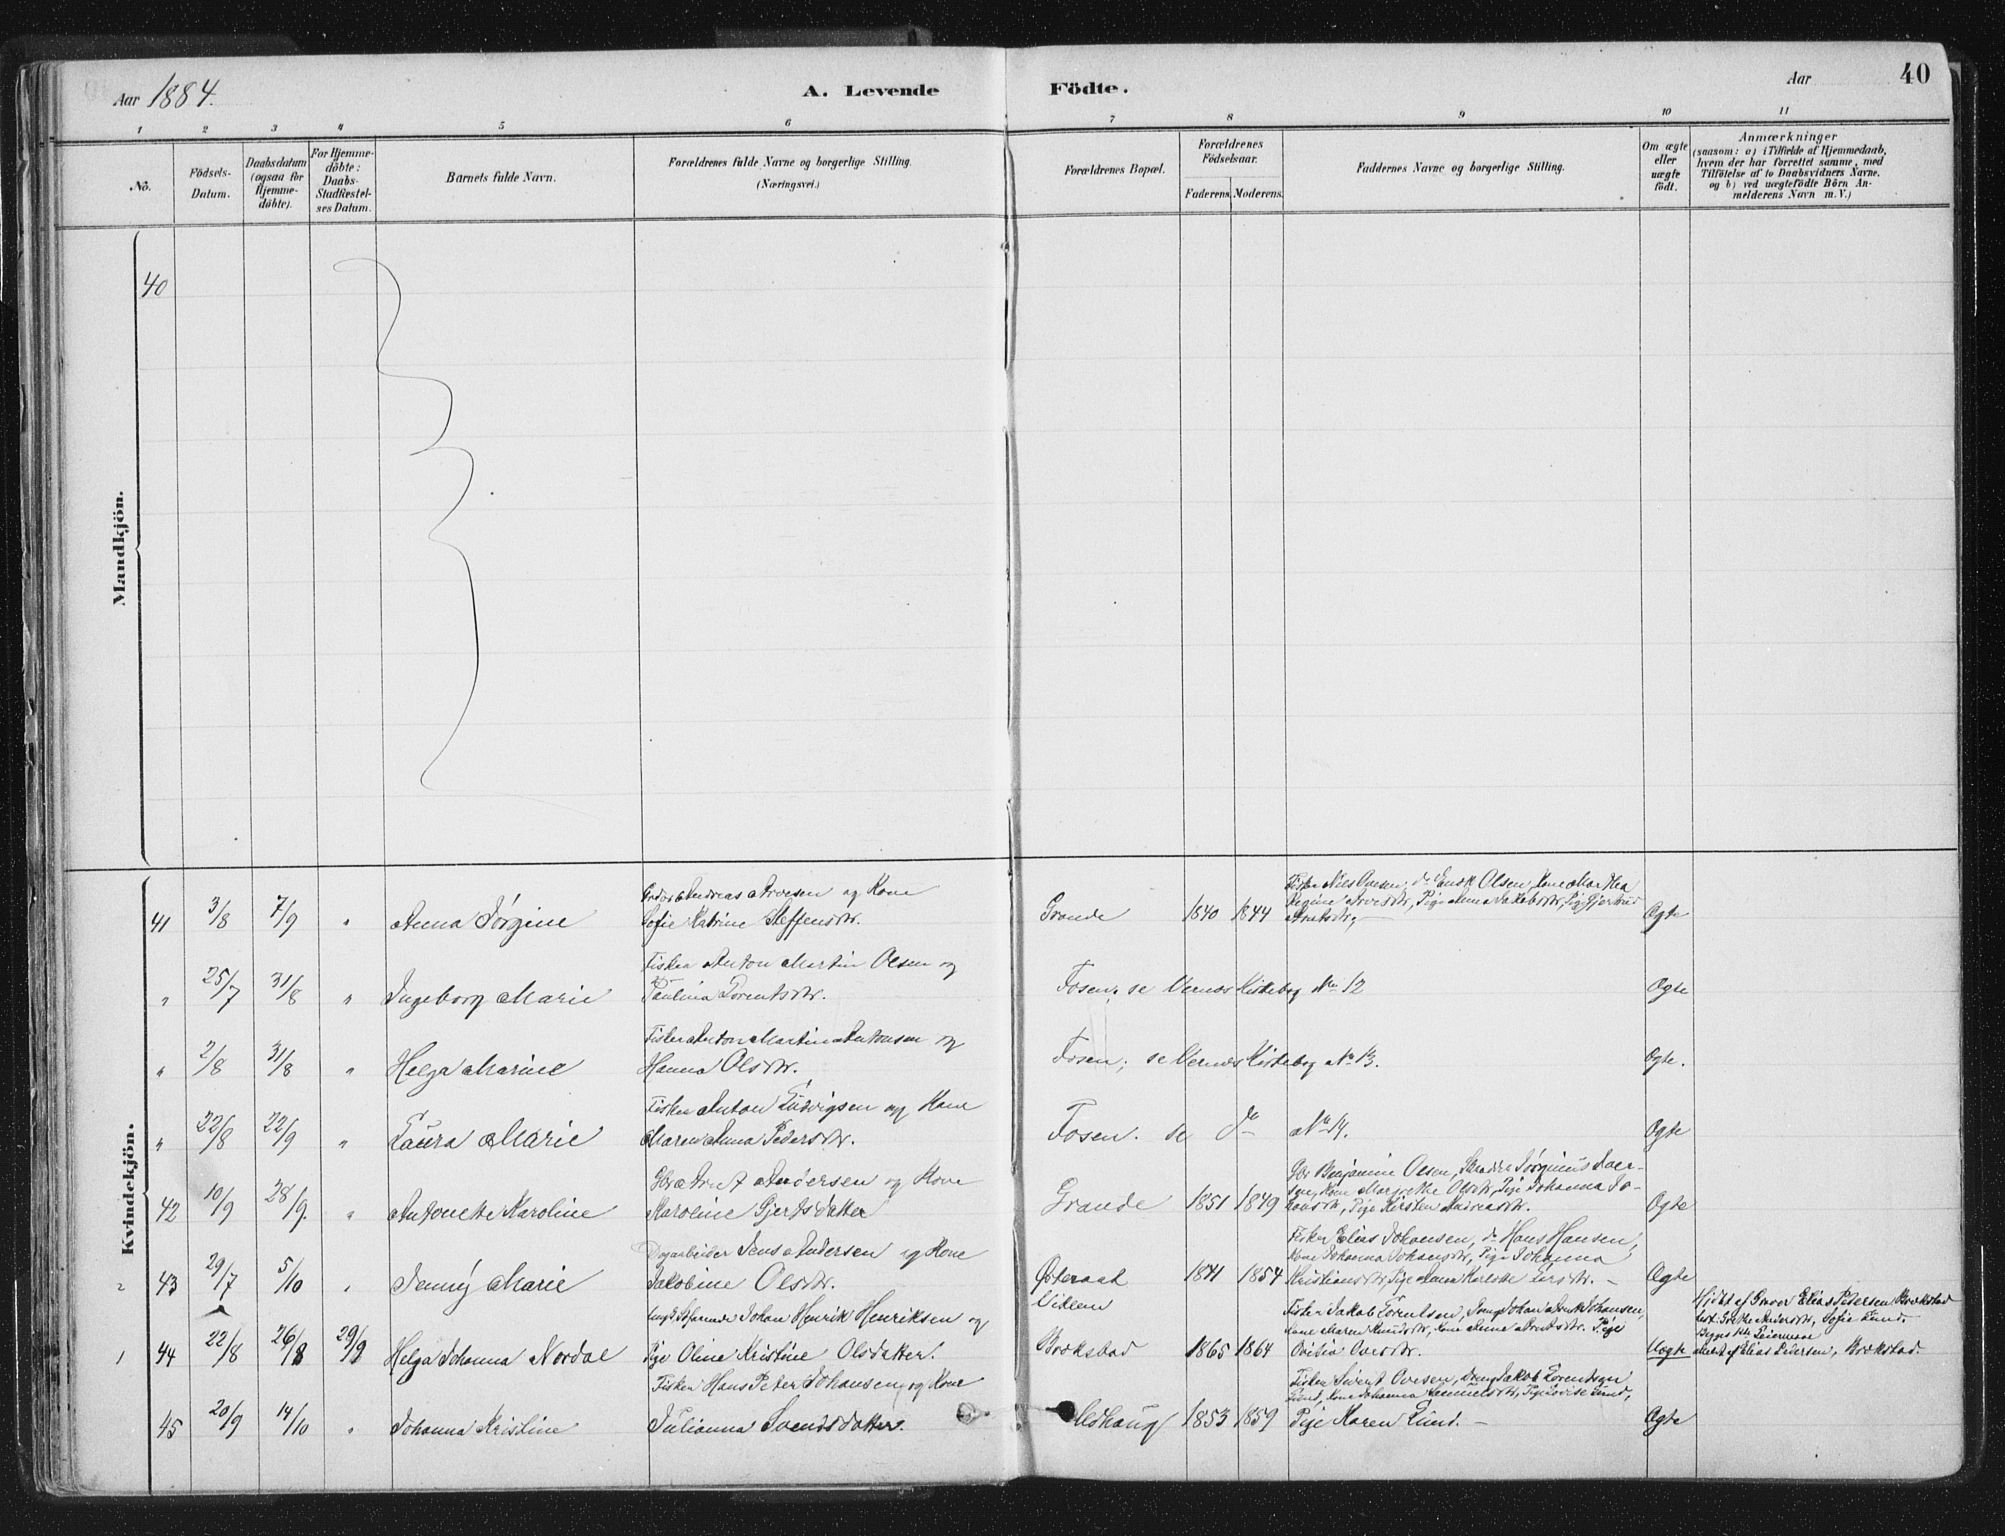 Aar 1884.
A. Levende Födte.
Aar
40
1 2 3 4 5 6 7 8 9 10 11
No.
Födsels-
Datum.
Daabsdatum
(ogsaa for
Hjemme-
döbte).
For Hjemme-
döbte:
Daabs-
Stadfæstel-
ses Datum.
Barnets fulde Navn.
Forældrenes fulde Navne og borgerlige Stilling.
(Næringsvei.)
Forældrenes Bopæl.
Forældrenes
Födselsaar.
Faderens. Moderens.
Faddernes Navne og borgerlige Stilling.
Om ægte
eller
uægte
födt.
Anmærkninger
(saasom: a) i Tilfælde af Hjemmedaab,
hvem der har forrettet samme, med
Tilföielse af to Daabsvidners Navne,
og b) ved uægtefödte Börn An-
melderens Navn m.V.)
Mandkjön.
40
Kvindekjön.
41 3/8 7/9 " Anna Jørgine
Andreas Arvesen og Kone
Sofie Katrine Steffensdtr.
Grande 1840 1844
Fisker Niels Ovesen, do Enok Olsen, Kone Marthea
Regine Arvesdtr, Pige Anna Jakobsdtr, Pige Gjertrud
Arntsdtr, —
Ægte
" 25/7 31/8 " Ingeborg Marie
Fisker Anton Martin Olsen og
Paulina Lorentsdtr.
Fosen; se Vernæs Kirkebog No 12
Ægte
" 2/8 31/8 " Helga Marine
Fisker Anton Martin Antonsen og
Hanna Olsdtr.
Fosen; se Vernæs Kirkebog No 13.
Ægte.
" 22/8 22/9 " Laura Marie
Fisker Anton Ludvigsen og Kone
Maren Anna Pedersdtr.
Fosen. se do No 14.
Ægte
42 10/9 28/9. " Antonette Karoline
Arnt Andersen og Kone
Karoline Gjertsdatter
Grande 1851 1849
Benjamin Olsen, Skrædder Jørginus Iver-
sen, Kone Margrethe Olsdtr, Pige Johanna Jo-
hansdtr, Pige Kirsten Andreasdtr.
Ægte
2 43 29/7 5/10 " Jenny Marie
Dagarbeider Jens Andersen og Kone
Jakobine Olsdtr.
Østeraat
Viklem
1841 1854
Fisker Elias Johansen, do Hans Hansen,
Kone Johanna Johansdtr, Pige Johanna
Kristiansdtr, Pige Anna Larsdtr. —
Ægte
1 44 22/8 26/8 29/9 Helga Johanna Nordal
Ungk. Johan Henrik Henriksen og
Pige Oline Kristine Olsdatter.
Brækstad 1865 1864
Fisker Jakob Lorentsen, Dreng Johan Arnt Johansen,
Kone Maren Knudsdtr, Kone Anne Arntsdtr. Pige
Ovidia Ovesdtr.
Uægte
Hjdøbt af Gravør Elias Pedersen Brækstad
Test: Grethe Andersdtr, Sofie Lund.
Begges 1ste Leiermaal
Anmeldt af Elias Pedersen, Brækstad.
45 20/9 14/10 " Johanna Kristine
Fisker Hans Peter Johansen og Kone
Julianna Svendsdatter.
Uthaug 1853 1859
Fisker Sivert Ovesen, Dreng Jakob Lorentsen
Lund, Kone Johanna Samuelsdtr, Pige Lovise Lund,
Pige Maren Lund. —
Ægte